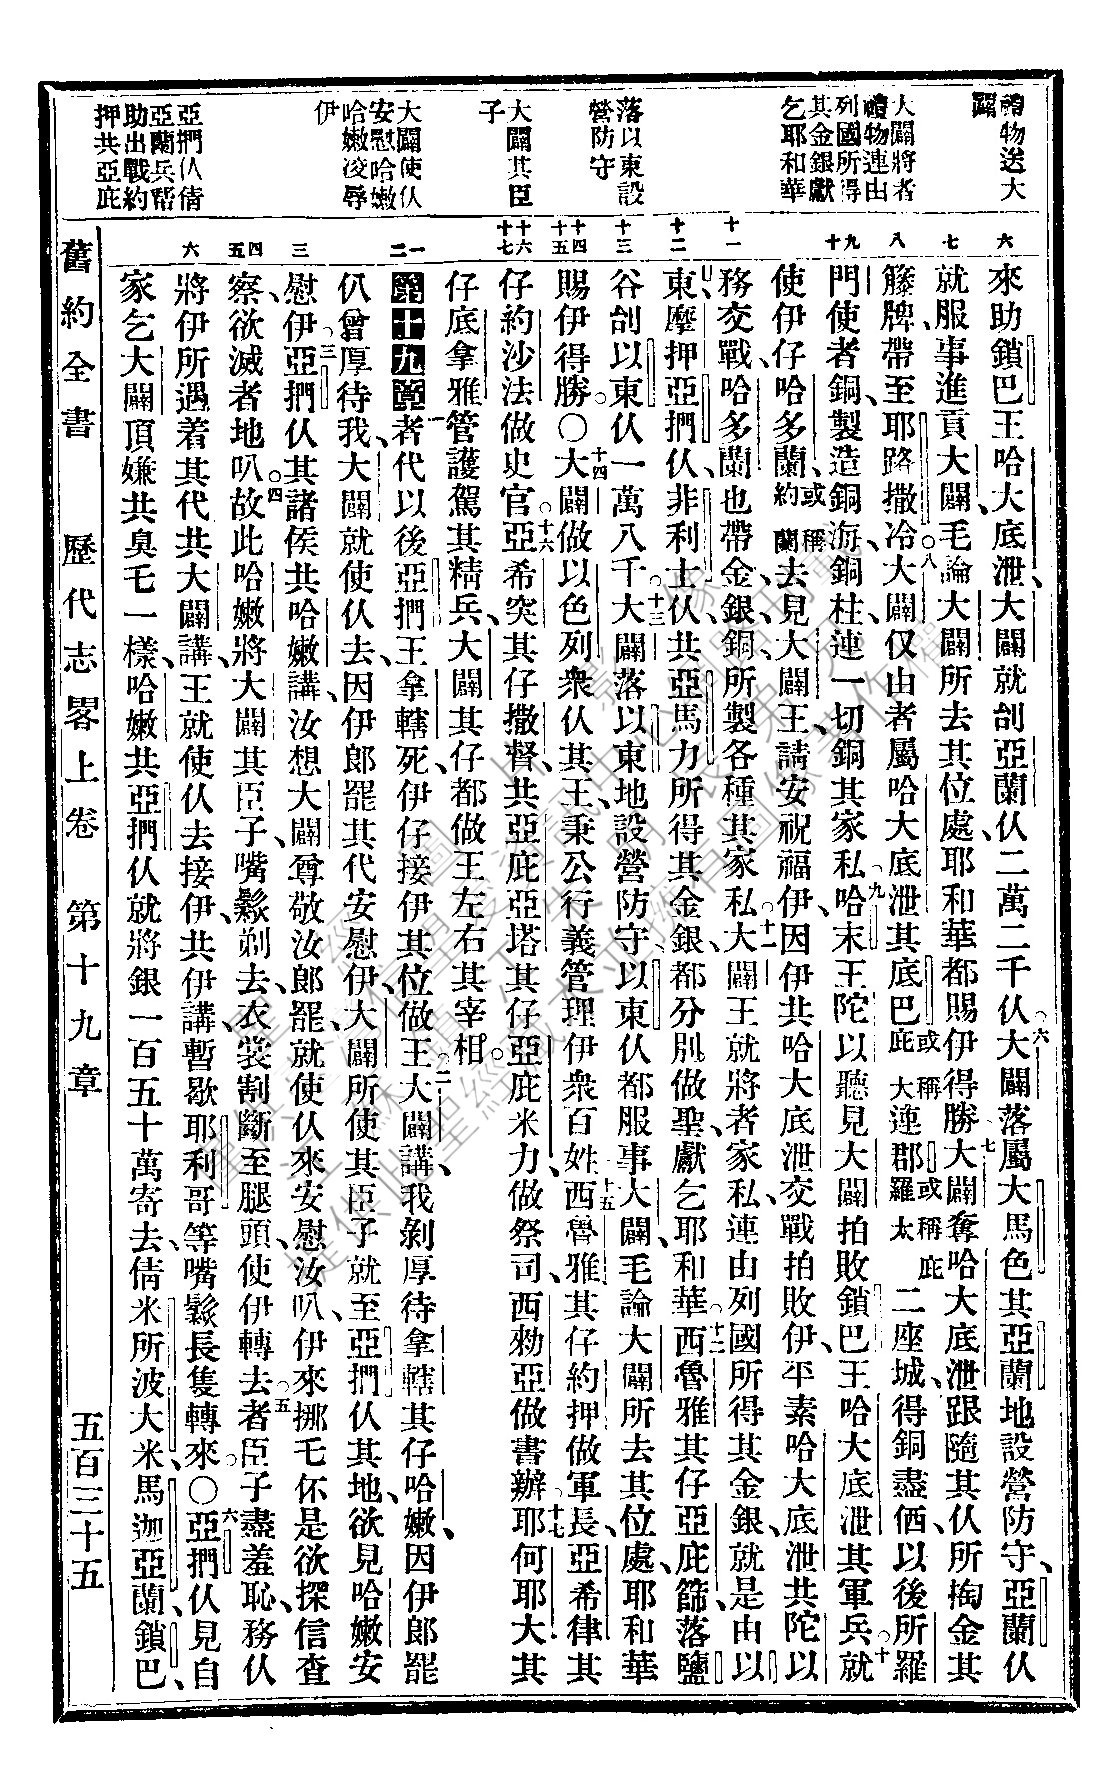 禮物送大
闢
大闢將者
禮物連由
列國所得
其金銀獻
乞耶和華
落以東設
營防守
大闢其臣
子
大闢使伙
安慰哈嫩
哈嫩凌辱
伊
亞捫伙倩
亞蘭兵幫
助出戰約
押共亞庇
六
七
八
九
十
十一
十二
十三
十四
十五
十六
十七
一
二
三
四
五
六
來助鎖巴王哈大底泄、大闢就刣亞蘭伙二萬二千伙。六大闢落屬大馬色其亞蘭地設營防守、亞蘭伙
就服事進貢大闢、毛論大闢所去其位處、耶和華都賜伊得勝。七大闢奪哈大底泄跟隨其伙所掏金其
籐牌、帶至耶路撒冷。八大闢仅由者屬哈大底泄其底巴或稱庇大連郡羅或稱庇太二座城、得銅盡価、以後所羅
門使者銅製造銅海、銅柱、連一切銅其家私。九哈末王陀以聽見大闢拍敗鎖巴王哈大底泄其軍兵、十就
使伊仔哈多蘭或稱約蘭去見大闢王、請安祝福伊、因伊共哈大底泄交戰拍敗伊、平素哈大底泄共陀以
務交戰、哈多蘭也帶金、銀、銅所製各種其家私。十一大闢王就將者家私連由列國所得其金銀、就是由以
東、摩押、亞捫伙、非利士伙、共亞馬力所得其金銀、都分別做聖、獻乞耶和華。十二西魯雅其仔亞庇篩落鹽
谷刣以東伙一萬八千。十三大闢落以東地設營防守、以東伙都服事大闢、毛論大闢所去其位處、耶和華
賜伊得勝。〇十四大闢做以色列衆伙其王、秉公行義管理伊衆百姓。十五西魯雅其仔約押做軍長、亞希律其
仔約沙法做史官。十六亞希突其仔撒督、共亞庇亞塔其仔亞庇米力、做祭司、西勑亞做書辦、十七耶何耶大其
仔底拿雅管護駕其精兵、大闢其仔都做王左右其宰相。
第十九章一者代以後、亞捫王拿轄死、伊仔接伊其位做王。二大闢講、我剝厚待拿轄其仔哈嫩、因伊郎罷
仈曾厚待我、大闢就使伙去、因伊郎罷其代安慰伊、大闢所使其臣子就至亞捫伙其地、欲見哈嫩安
慰伊。三亞捫伙其諸侯共哈嫩講、汝想大闢尊敬汝郎罷、就使伙來安慰汝叭、伊來挪乇伓是欲探信查
察、欲滅者地叭。四故此哈嫩將大闢其臣子、嘴鬚剃去、衣裳割斷至腿頭、使伊轉去。五者臣子盡羞恥、務伙
將伊所遇着其代共大闢講、王就使伙去接伊、共伊講、暫歇耶利哥等嘴鬚長隻轉來。〇六亞捫伙見自
家乞大闢頂嫌共臭乇一樣、哈嫩共亞捫伙就將銀一百五十萬寄去、倩米所波大米、馬迦亞蘭、鎖巴、
舊約全書 歷代志畧上卷 第十九章 五百三十五